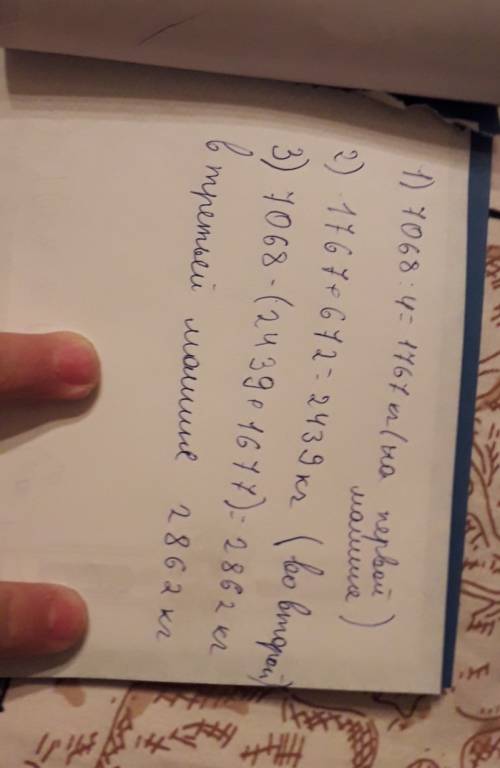 1) 7068:4=1767кг(на первой
машине)
2) 1767+672=2439кг (во второй)
3) 7068-(2439+1677)=2862кг
в третьей машине 2862кг